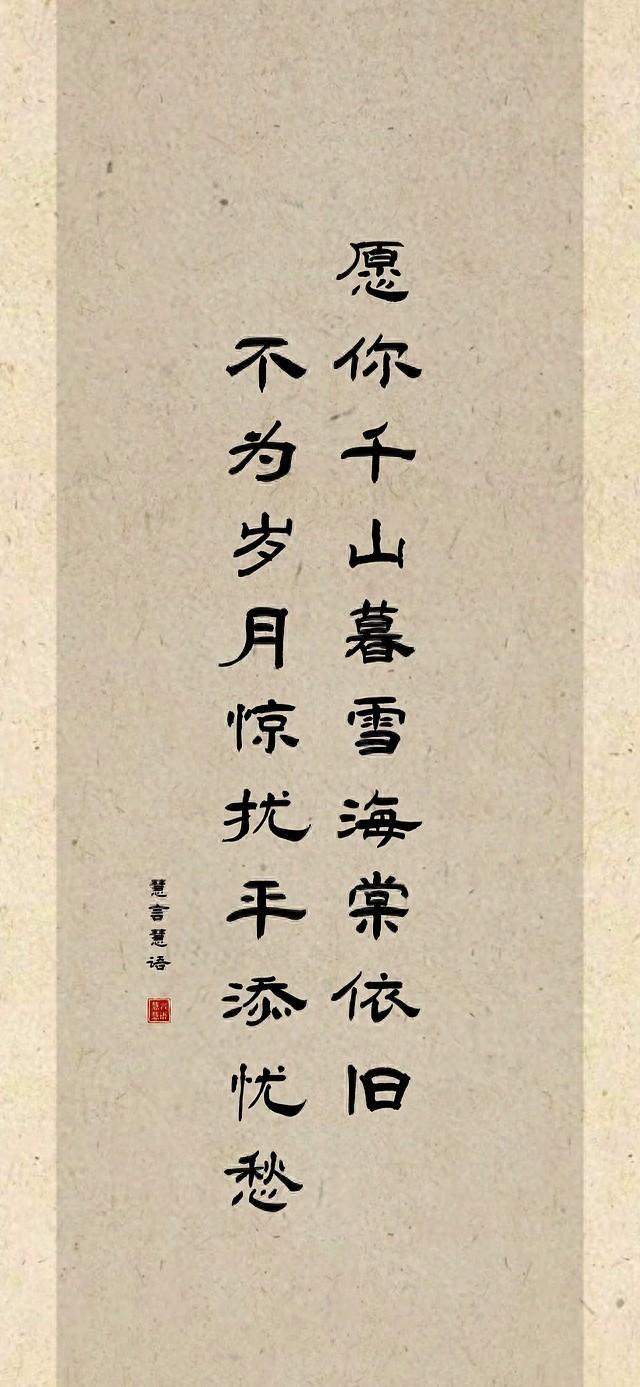 愿你千山暮雪海棠依旧
不为岁月惊扰平添忧愁
慧言慧语
慧慧言语